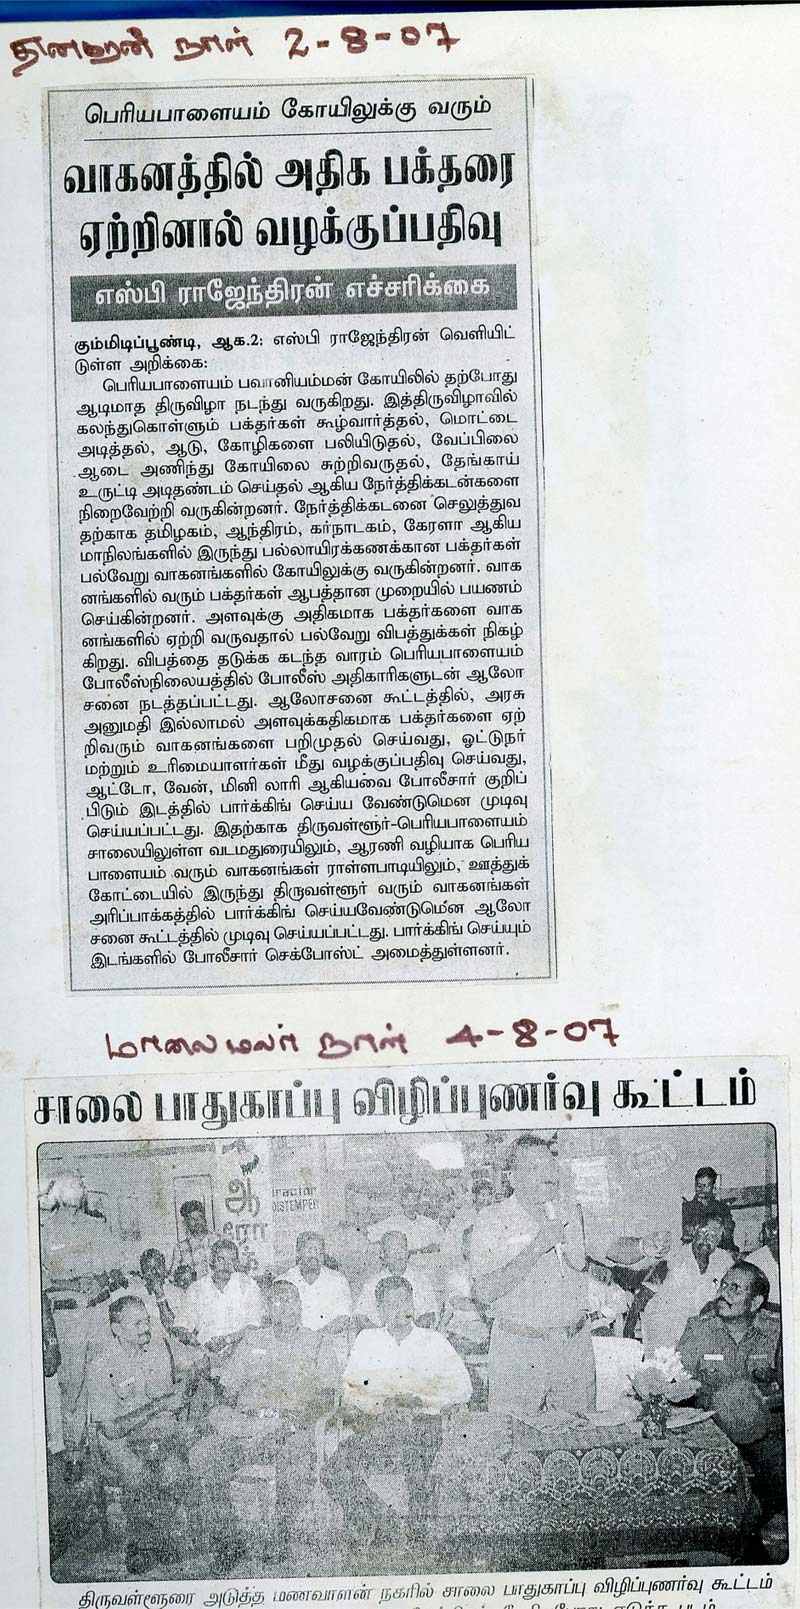 தினகரன் நாள் 2-8-07
பெரியபாளையம் கோயிலுக்கு வரும்
வாகனத்தில் அதிக பக்தரை
ஏற்றினால் வழக்குப்பதிவு
எஸ்பி ராஜேந்திரன் எச்சரிக்கை
கும்மிடிப்பூண்டி, ஆக.2: எஸ்பி ராஜேந்திரன் வெளியிட்
டுள்ள அறிக்கை:
பெரியபாளையம் பவானியம்மன் கோயிலில் தற்போது
ஆடிமாத திருவிழா நடந்து வருகிறது. இத்திருவிழாவில்
கலந்துகொள்ளும் பக்தர்கள் கூழ்வார்த்தல், மொட்டை
அடித்தல், ஆடு, கோழிகளை பலியிடுதல், வேப்பிலை
ஆடை அணிந்து கோயிலை சுற்றிவருதல், தேங்காய்
உருட்டி அடிதண்டம் செய்தல் ஆகிய நேர்த்திக்கடன்களை
நிறைவேற்றி வருகின்றனர். நேர்த்திக்கடனை செலுத்துவ
தற்காக தமிழகம், ஆந்திரம், கர்நாடகம், கேரளா ஆகிய
மாநிலங்களில் இருந்து பல்லாயிரக்கணக்கான பக்தர்கள்
பல்வேறு வாகனங்களில் கோயிலுக்கு வருகின்றனர். வாக
னங்களில் வரும் பக்தர்கள் ஆபத்தான முறையில் பயணம்
செய்கின்றனர். அளவுக்கு அதிகமாக பக்தர்களை வாக
னங்களில் ஏற்றி வருவதால் பல்வேறு விபத்துக்கள் நிகழ்
கிறது. விபத்தை தடுக்க கடந்த வாரம் பெரியபாளையம்
போலீஸ்நிலையத்தில் போலீஸ் அதிகாரிகளுடன் ஆலோ
சனை நடத்தப்பட்டது. ஆலோசனை கூட்டத்தில், அரசு
அனுமதி இல்லாமல் அளவுக்கதிகமாக பக்தர்களை ஏற்
றிவரும் வாகனங்களை பறிமுதல் செய்வது, ஓட்டுநர்
மற்றும் உரிமையாளர்கள் மீது வழக்குப்பதிவு செய்வது,
ஆட்டோ, வேன், மினி லாரி ஆகியவை போலீசார் குறிப்
பிடும் இடத்தில் பார்க்கிங் செய்ய வேண்டுமென முடிவு
செய்யப்பட்டது. இதற்காக திருவள்ளூர்-பெரியபாளையம்
சாலையிலுள்ள வடமதுரையிலும், ஆரணி வழியாக பெரிய
பாளையம் வரும் வாகனங்கள் ராள்ளபாடியிலும், ஊத்துக்
கோட்டையில் இருந்து திருவள்ளூர் வரும் வாகனங்கள்
அரிப்பாக்கத்தில் பார்க்கிங் செய்யவேண்டுமென ஆலோ
சனை கூட்டத்தில் முடிவு செய்யப்பட்டது. பார்க்கிங் செய்யும்
இடங்களில் போலீசார் செக்போஸ்ட் அமைத்துள்ளனர்.
மாலைமலர் நாள் 4-8-07
சாலை பாதுகாப்பு விழிப்புணர்வு கூட்டம்
ஆ
ரோ
DISTEMPER
திருவள்ளூரை அடுத்த மணவாளன் நகரில் சாலை பாதுகாப்பு விழிப்புணர்வு கூட்டம்